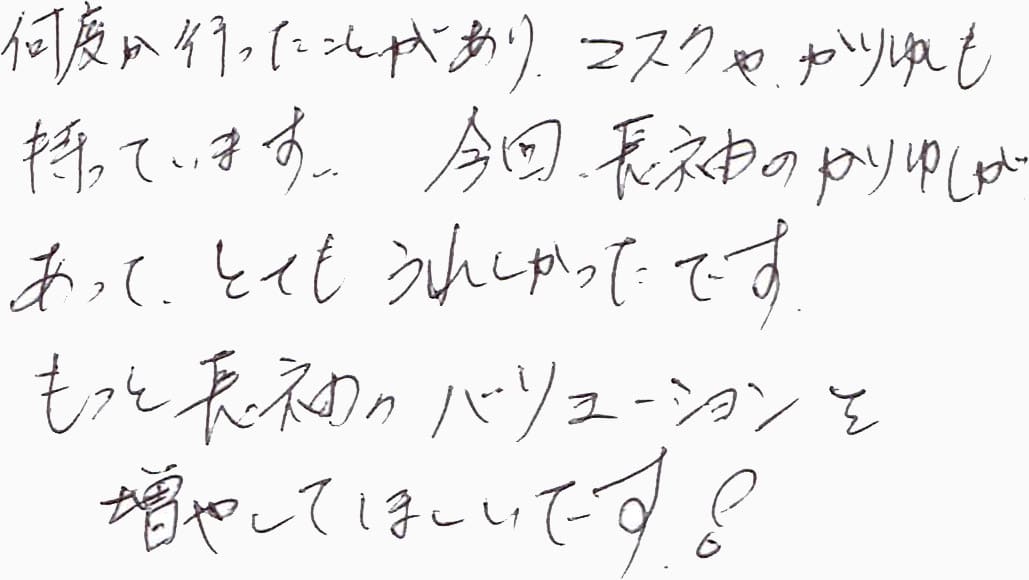 何度か行ったことがあり、マスクや、かりゆしも
持っています。 今回、長袖のかりゆしが
あって、とてもうれしかったです。
もっと長袖のバリエーションを
増やしてほしいです!